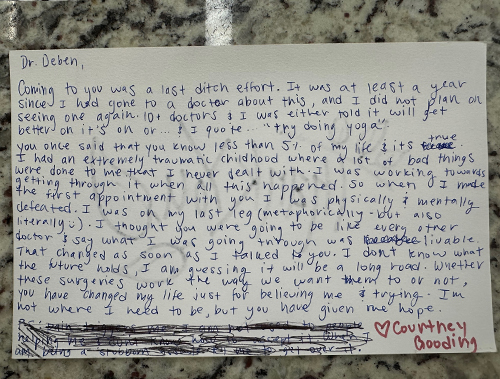 Dr. Deben,
Coming to you was a last ditch effort. It was at least a year
since I had gone to a doctor about this, and I did not plan on
seeing one again. 10+ doctors & I was either told it will get
better on it's on or... & I quote... "try doing yoga"
you once said that you know less than 5% of my life & its true
I had an extremely traumatic childhood where a lot of bad things
were done to me that I never dealt with. I was working towards
getting through it when all this happened. So when I made
the first appointment with you I was physically & mentally
defeated. I was on my last leg (metaphorically - but also
literally :). I thought you were going to be like every other
doctor & say what I was going through was livable.
That changed as soon as I talked to you. I don't know what
the future holds, I am guessing it will be a long road. Whether
these surgeries work the way we want them to or not,
you have changed my life just for believing me & trying. I'm
not where I need to be, but you have given me hope.
♡Courtney
Gooding